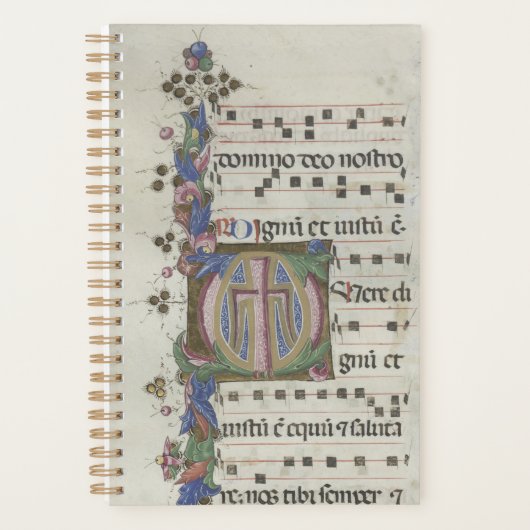 domino deo nostro
Dignū et iustū ē
Vere di
gnū et
iustū ē equū ⁊ saluta
re; nos tibi semper ⁊